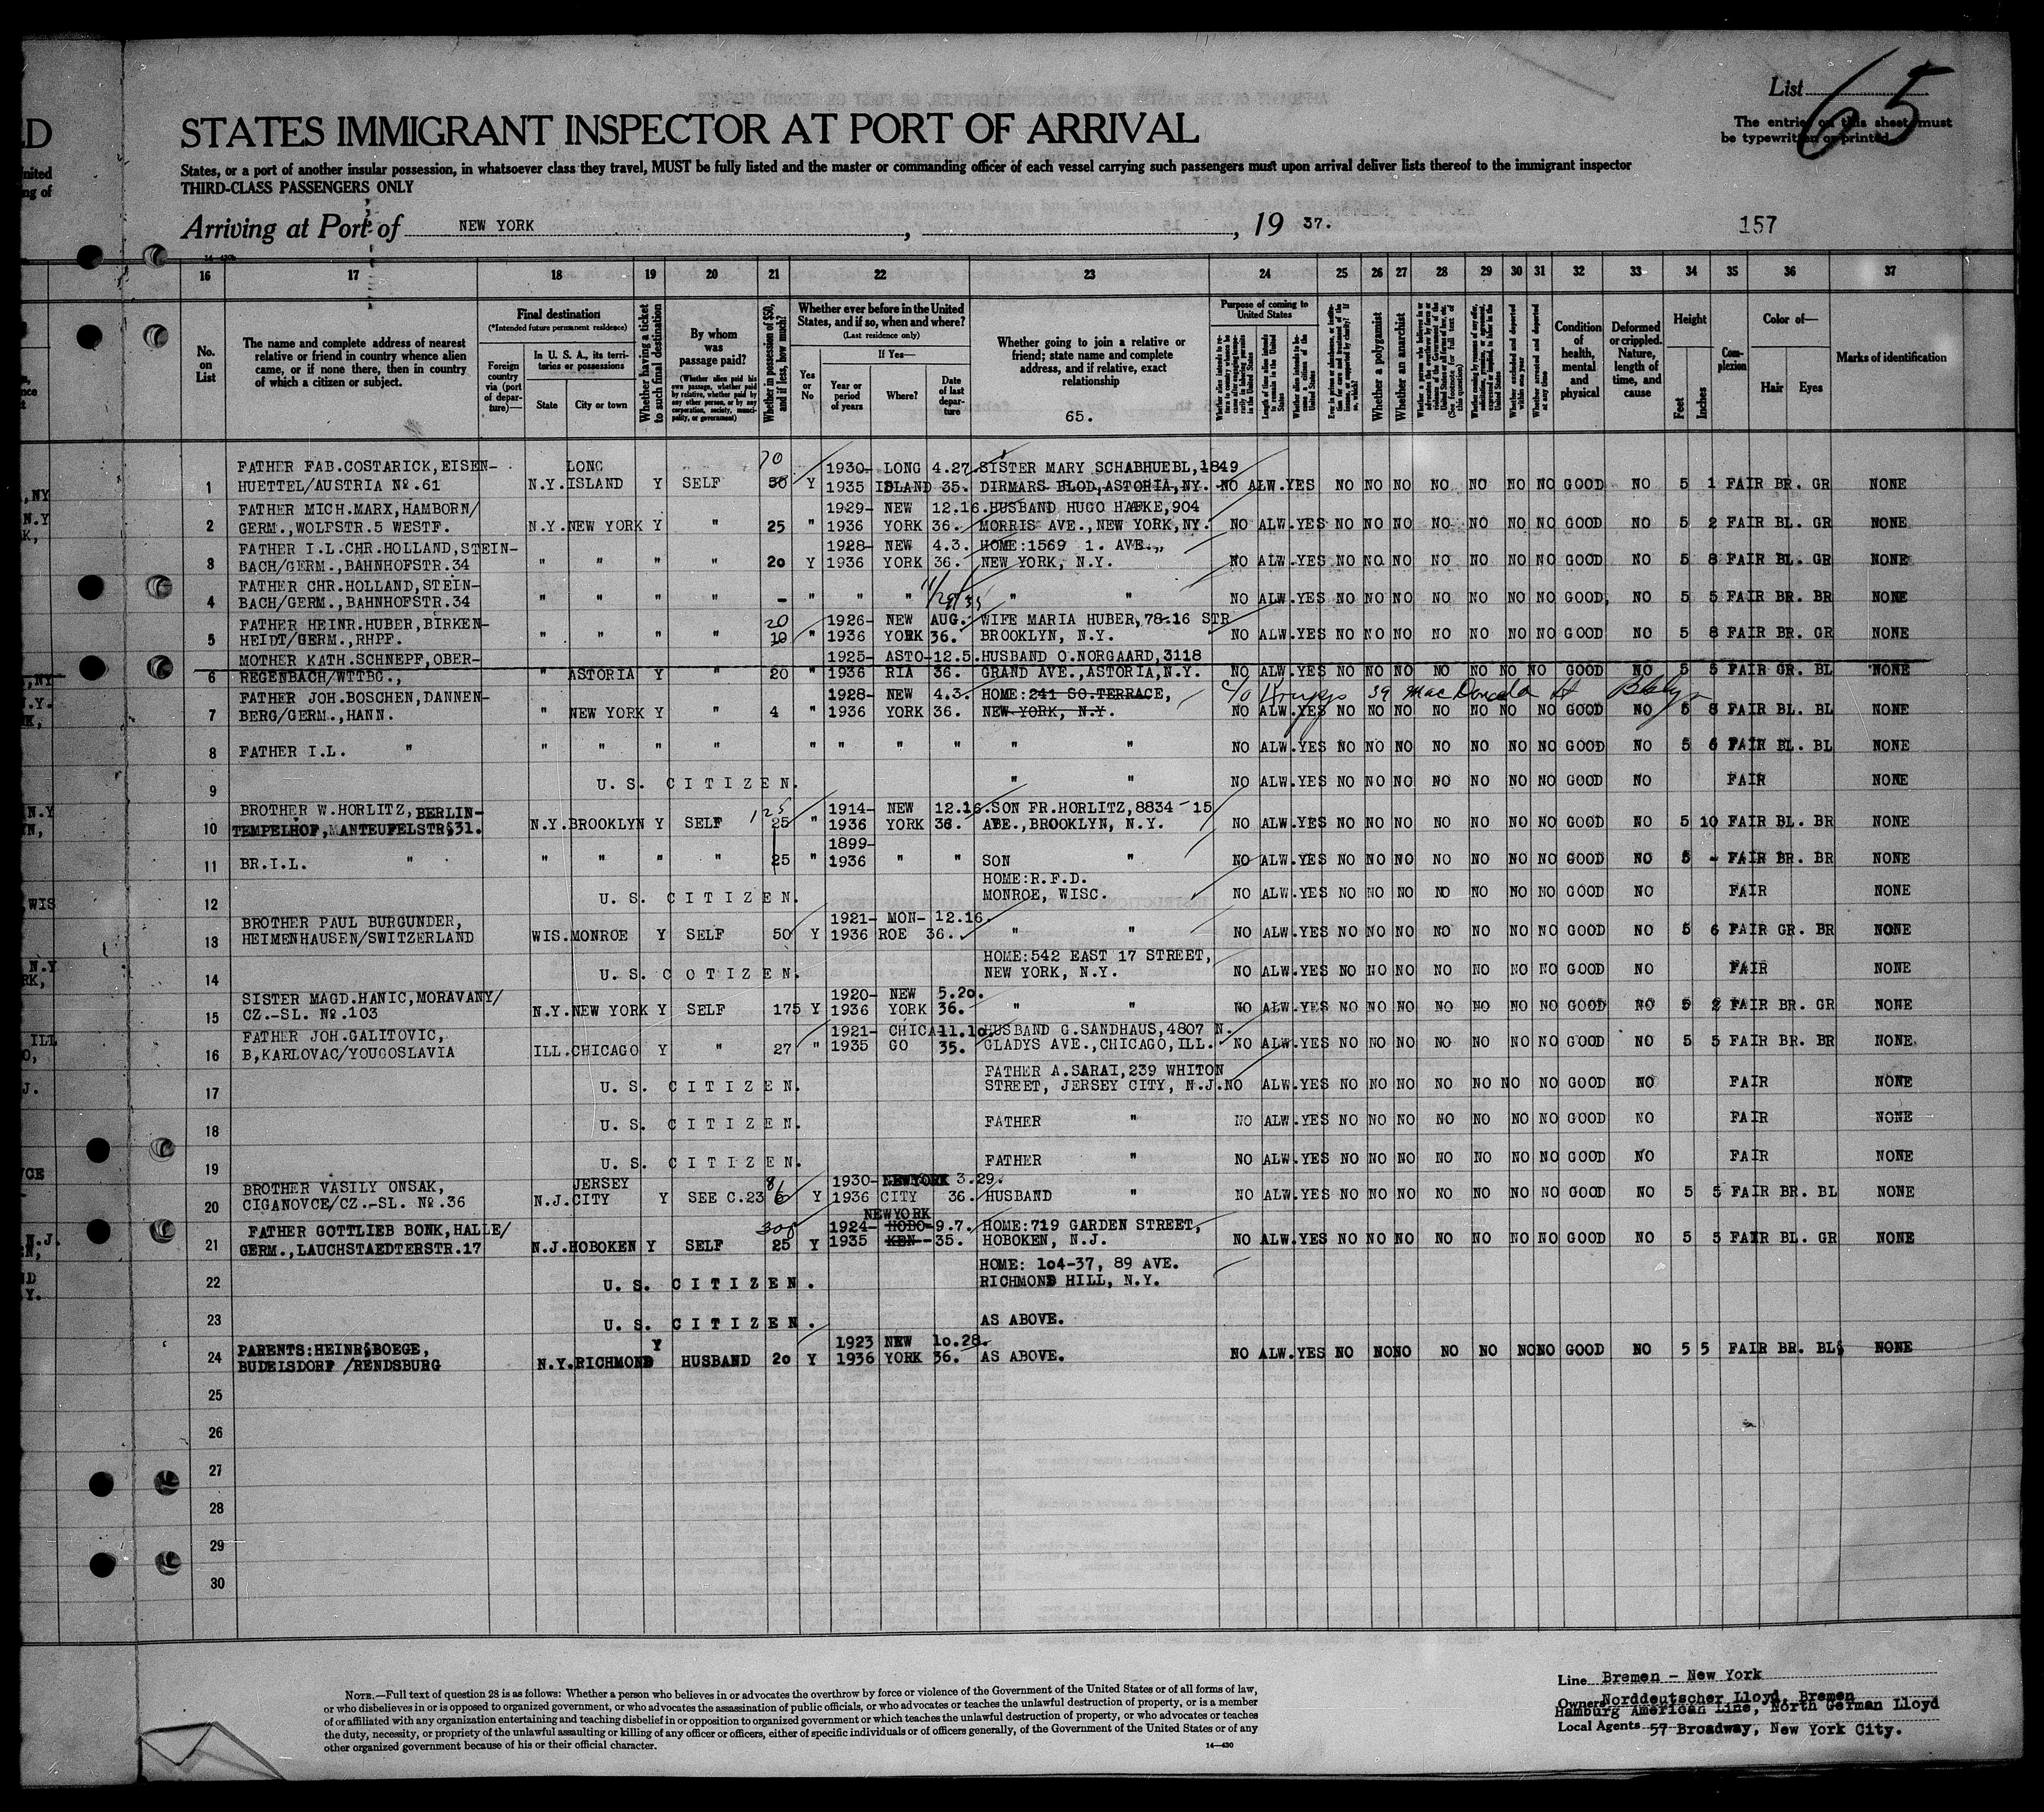 List 65
The entries on this sheet must
be typewritten or printed
STATES IMMIGRANT INSPECTOR AT PORT OF ARRIVAL
States, or a port of another insular possession, in whatsoever class they travel, MUST be fully listed and the master or commanding officer of each vessel carrying such passengers must upon arrival deliver lists thereof to the immigrant inspector
THIRD-CLASS PASSENGERS ONLY
Arriving at Port of NEW YORK , , 19 37. 157
16 17 18 19 20 21 22 23 24 25 26 27 28 29 30 31 32 33 34 35 36 37
No. on List
The name and complete address of nearest relative or friend in country whence alien came, or if none there, then in country of which a citizen or subject.
Final destination
(*Intended future permanent residence)
Foreign country via (port of departure)—
In U. S. A., its territories or possessions
State City or town
Whether having a ticket to such final destination
By whom was passage paid?
(Whether alien paid his own passage, whether paid by relative, whether paid by any other person, or by any corporation, society, municipality, or government)
Whether in possession of $50, and if less, how much?
Whether ever before in the United States, and if so, when and where?
(Last residence only)
Yes or No
If Yes—
Year or period of years Where? Date of last departure
Whether going to join a relative or friend; state name and complete address, and if relative, exact relationship
65.
Purpose of coming to United States
Whether a polygamist
Whether an anarchist
Condition of health, mental and physical
Deformed or crippled. Nature, length of time, and cause
Height
Feet Inches
Complexion
Color of—
Hair Eyes
Marks of identification
FATHER FAB.COSTARICK,EISEN- LONG 70 1930- LONG 4.27. SISTER MARY SCHABHUEBL,1849
1 HUETTEL/AUSTRIA No.61 N.Y. ISLAND Y SELF 50 Y 1935 ISLAND 35. DIRMARS BLOD,ASTORIA,NY. NO ALW. YES NO NO NO NO NO NO NO GOOD NO 5 1 FAIR BR. GR NONE
FATHER MICH.MARX,HAMBORN/ 1929- NEW 12.16. HUSBAND HUGO HAFKE,904
2 GERM.,WOLFSTR.5 WESTF. N.Y. NEW YORK Y " 25 " 1936 YORK 36. MORRIS AVE.,NEW YORK,NY. NO ALW. YES NO NO NO NO NO NO NO GOOD NO 5 2 FAIR BL. GR NONE
FATHER I.L.CHR.HOLLAND,STEIN- 1928- NEW 4.3. HOME:1569 1. AVE.,
3 BACH/GERM.,BAHNHOFSTR.34 " " " " 20 Y 1936 YORK 36. NEW YORK, N.Y. NO ALW. YES NO NO NO NO NO NO NO GOOD NO 5 8 FAIR BL. GR NONE
FATHER CHR.HOLLAND,STEIN-
4 BACH/GERM.,BAHNHOFSTR.34 " " " " - " " " " " NO ALW. YES NO NO NO NO NO NO NO GOOD, NO 5 5 FAIR BR. BR NONE
FATHER HEINR.HUBER,BIRKEN- 20 1926- NEW AUG. WIFE MARIA HUBER,78-16 STR
5 HEIDT/GERM.,RHPF. " " " " 10 " 1936 YORK 36. BROOKLYN, N.Y. NO ALW. YES NO NO NO NO NO NO NO GOOD NO 5 8 FAIR BR. GR NONE
MOTHER KATH.SCHNEPF,OBER- 1925- ASTO- 12.5. HUSBAND O.NORGAARD,3118
6 REGENBACH/WTTBG., " ASTORIA Y " 20 " 1936 RIA 36. GRAND AVE.,ASTORIA,N.Y. NO ALW. YES NO NO NO NO NO NO NO GOOD NO 5 5 FAIR GR. BL NONE
FATHER JOH.BOSCHEN,DANNEN- 1928- NEW 4.3. HOME:241 SO.TERRACE, c/o 39 MacDonald St
7 BERG/GERM.,HANN. " NEW YORK Y " 4 " 1936 YORK 36. NEW YORK, N.Y. NO ALW. YES NO NO NO NO NO NO NO GOOD NO 5 8 FAIR BL. BL NONE
8 FATHER I.L. " " " " " " " " " " " NO ALW. YES NO NO NO NO NO NO NO GOOD NO 5 6 FAIR BL. BL NONE
9 U. S. C I T I Z E N. " " NO ALW. YES NO NO NO NO NO NO NO GOOD NO FAIR NONE
BROTHER W.HORLITZ,BERLIN- 125 1914- NEW 12.16. SON FR.HORLITZ,8834 - 15
10 TEMPELHOF,MANTEUFELSTR§31. N.Y. BROOKLYN Y SELF 25 " 1936 YORK 36. AVE.,BROOKLYN, N.Y. NO ALW. YES NO NO NO NO NO NO NO GOOD NO 5 10 FAIR BL. BR NONE
1899-
11 BR.I.L. " " " " " 25 " 1936 " " SON " NO ALW. YES NO NO NO NO NO NO NO GOOD NO 5 - FAIR BR. BR NONE
HOME:R.F.D.
12 U. S. C I T I Z E N. MONROE, WISC. NO ALW. YES NO NO NO NO NO NO NO GOOD NO FAIR NONE
BROTHER PAUL BURGUNDER, 1921- MON- 12.16.
13 HEIMENHAUSEN/SWITZERLAND WIS. MONROE Y SELF 50 Y 1936 ROE 36. " " NO ALW. YES NO NO NO NO NO NO NO GOOD NO 5 6 FAIR GR. BR NONE
HOME:542 EAST 17 STREET,
14 U. S. C O T I Z E N. NEW YORK, N.Y. NO ALW. YES NO NO NO NO NO NO NO GOOD NO FAIR NONE
SISTER MAGD.HANIC,MORAVANY/ 1920- NEW 5.20.
15 CZ.-SL. No.103 N.Y. NEW YORK Y SELF 175 Y 1936 YORK 36. " " NO ALW. YES NO NO NO NO NO NO NO GOOD NO 5 2 FAIR BR. GR NONE
FATHER JOH.GALITOVIC, 1921- CHICA- 11.10. HUSBAND G.SANDHAUS,4807 N.
16 B,KARLOVAC/YOUGOSLAVIA ILL. CHICAGO Y " 27 " 1935 GO 35. GLADYS AVE.,CHICAGO,ILL. NO ALW. YES NO NO NO NO NO NO NO GOOD NO 5 5 FAIR BR. BR NONE.
FATHER A.SARAI,239 WHITON
17 U. S. C I T I Z E N. STREET, JERSEY CITY, N.J. NO ALW. YES NO NO NO NO NO NO NO GOOD NO FAIR NONE
18 U. S. C I T I Z E N. FATHER " NO ALW. YES NO NO NO NO NO NO NO GOOD NO FAIR NONE
19 U. S. C I T I Z E N. FATHER " NO ALW. YES NO NO NO NO NO NO NO GOOD NO FAIR NONE
BROTHER VASILY ONSAK, JERSEY 1930- NEWYORK 3.29.
20 CIGANOVCE/CZ.-SL. No.36 N.J. CITY Y SEE C.23 6 Y 1936 CITY 36. HUSBAND " NO ALW. YES NO NO NO NO NO NO NO GOOD NO 5 5 FAIR BR. BL NONE
NEWYORK
FATHER GOTTLIEB BONK,HALLE/ 300 1924- HOBO- 9.7. HOME:719 GARDEN STREET,
21 GERM.,LAUCHSTAEDTERSTR.17 N.J. HOBOKEN Y SELF 25 Y 1935 KEN- 35. HOBOKEN, N.J. NO ALW. YES NO NO NO NO NO NO NO GOOD NO 5 5 FAIR BL. GR NONE
HOME: 1o4-37, 89 AVE.
22 U. S. C I T I Z E N. RICHMOND HILL, N.Y.
23 U. S. C I T I Z E N. AS ABOVE.
PARENTS:HEINR§BOEGE, Y 1923 NEW 1o.28.
24 BUDELSDORF /RENDSBURG N.Y. RICHMOND HUSBAND 2o Y 1936 YORK 36. AS ABOVE. NO ALW. YES NO NO NO NO NO NO NO GOOD NO 5 5 FAIR BR. BL§ NONE
25
26
27
28
29
30
NOTE.—Full text of question 28 is as follows: Whether a person who believes in or advocates the overthrow by force or violence of the Government of the United States or of all forms of law,
or who disbelieves in or is opposed to organized government, or who advocates the assassination of public officials, or who advocates or teaches the unlawful destruction of property, or is a member
of or affiliated with any organization entertaining and teaching disbelief in or opposition to organized government or which teaches the unlawful destruction of property, or who advocates or teaches
the duty, necessity, or propriety of the unlawful assaulting or killing of any officer or officers, either of specific individuals or of officers generally, of the Government of the United States or of any
other organized government because of his or their official character.
14—430
Line Bremen - New York
Owners Norddeutscher Lloyd, Bremen
Hamburg American Line, North German Lloyd
Local Agents 57 Broadway, New York City.